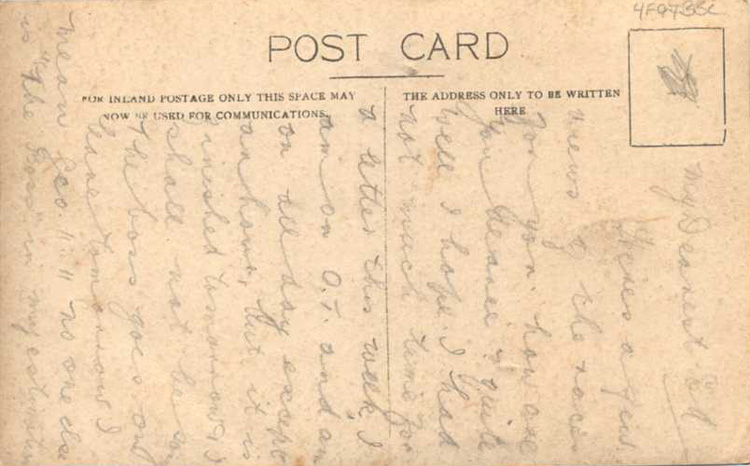 4F9733L
POST CARD
FOR INLAND POSTAGE ONLY THIS SPACE MAY
NOW BE USED FOR COMMUNICATIONS.
THE ADDRESS ONLY TO BE WRITTEN
HERE
My Dearest Ed
Heres a few
views of the races
for you. how are
you Deanee? quite
well I hope. I had
not much time for
a letter this week. I
am on O.T. and am
on all day except
an hour, but it is
finished tomorrow & I
shall not be
The boss goes on
leave tomorrow I
mean Geo "!" no one else
is "The Boss" in my estimation